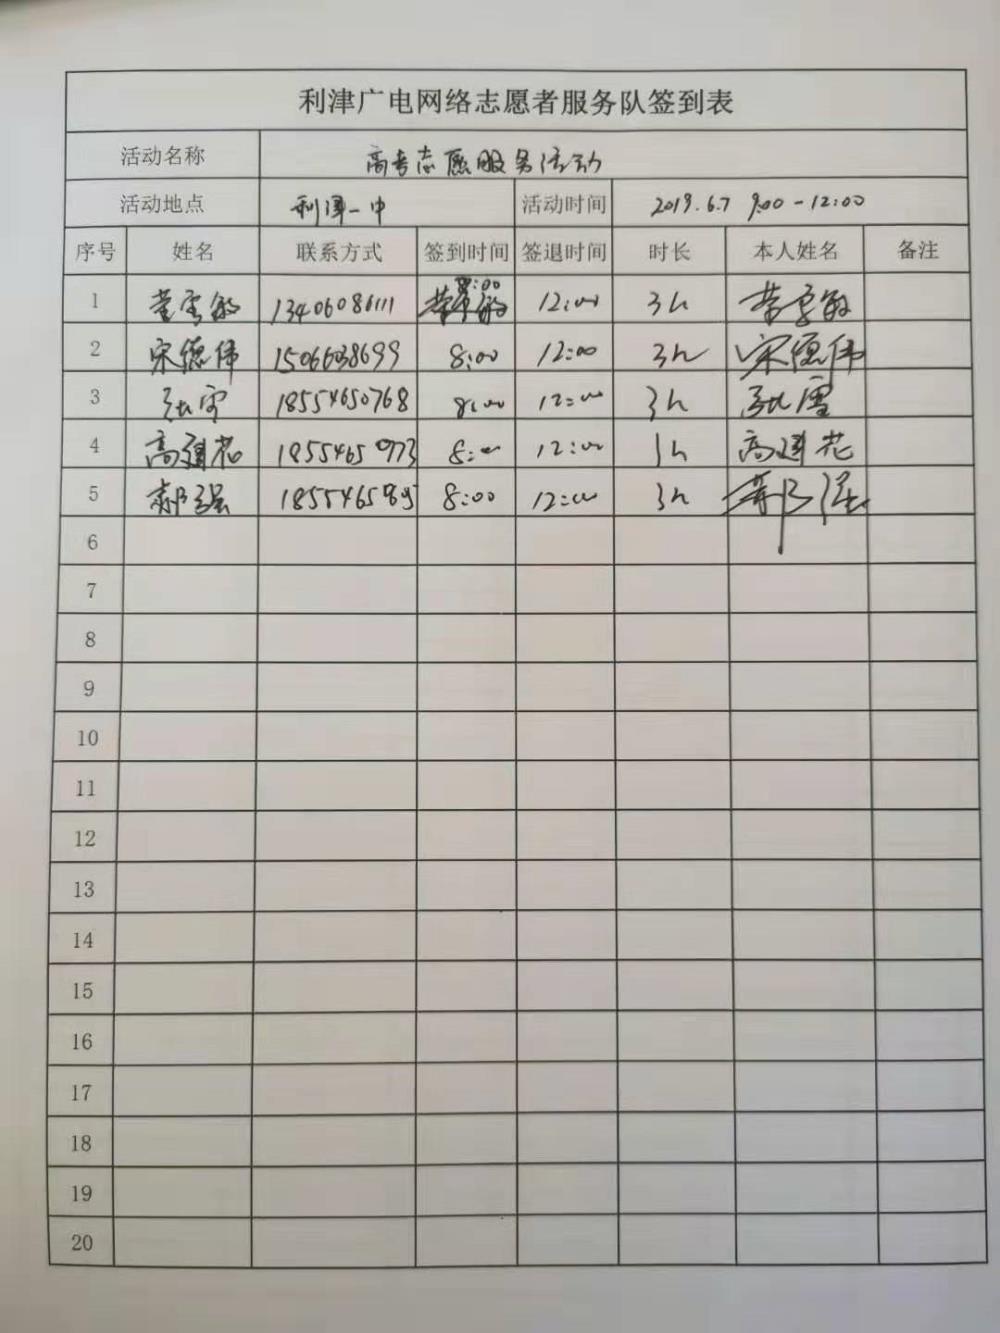 利津广电网络志愿者服务队签到表
活动名称 高考志愿服务活动
活动地点 利津一中 活动时间 2019.6.7 9:00-12:00
序号 姓名 联系方式 签到时间 签退时间 时长 本人姓名 备注
1 13406086111 8:00 12:00 3h
2 宋德伟 15066038699 8:00 12:00 3h 宋德伟
3 张雪 18554650768 8:00 12:00 3h 张雪
4 高莲花 8:00 12:00 高莲花
5 郝强 8:00 12:00 3h 郝强
6
7
8
9
10
11
12
13
14
15
16
17
18
19
20